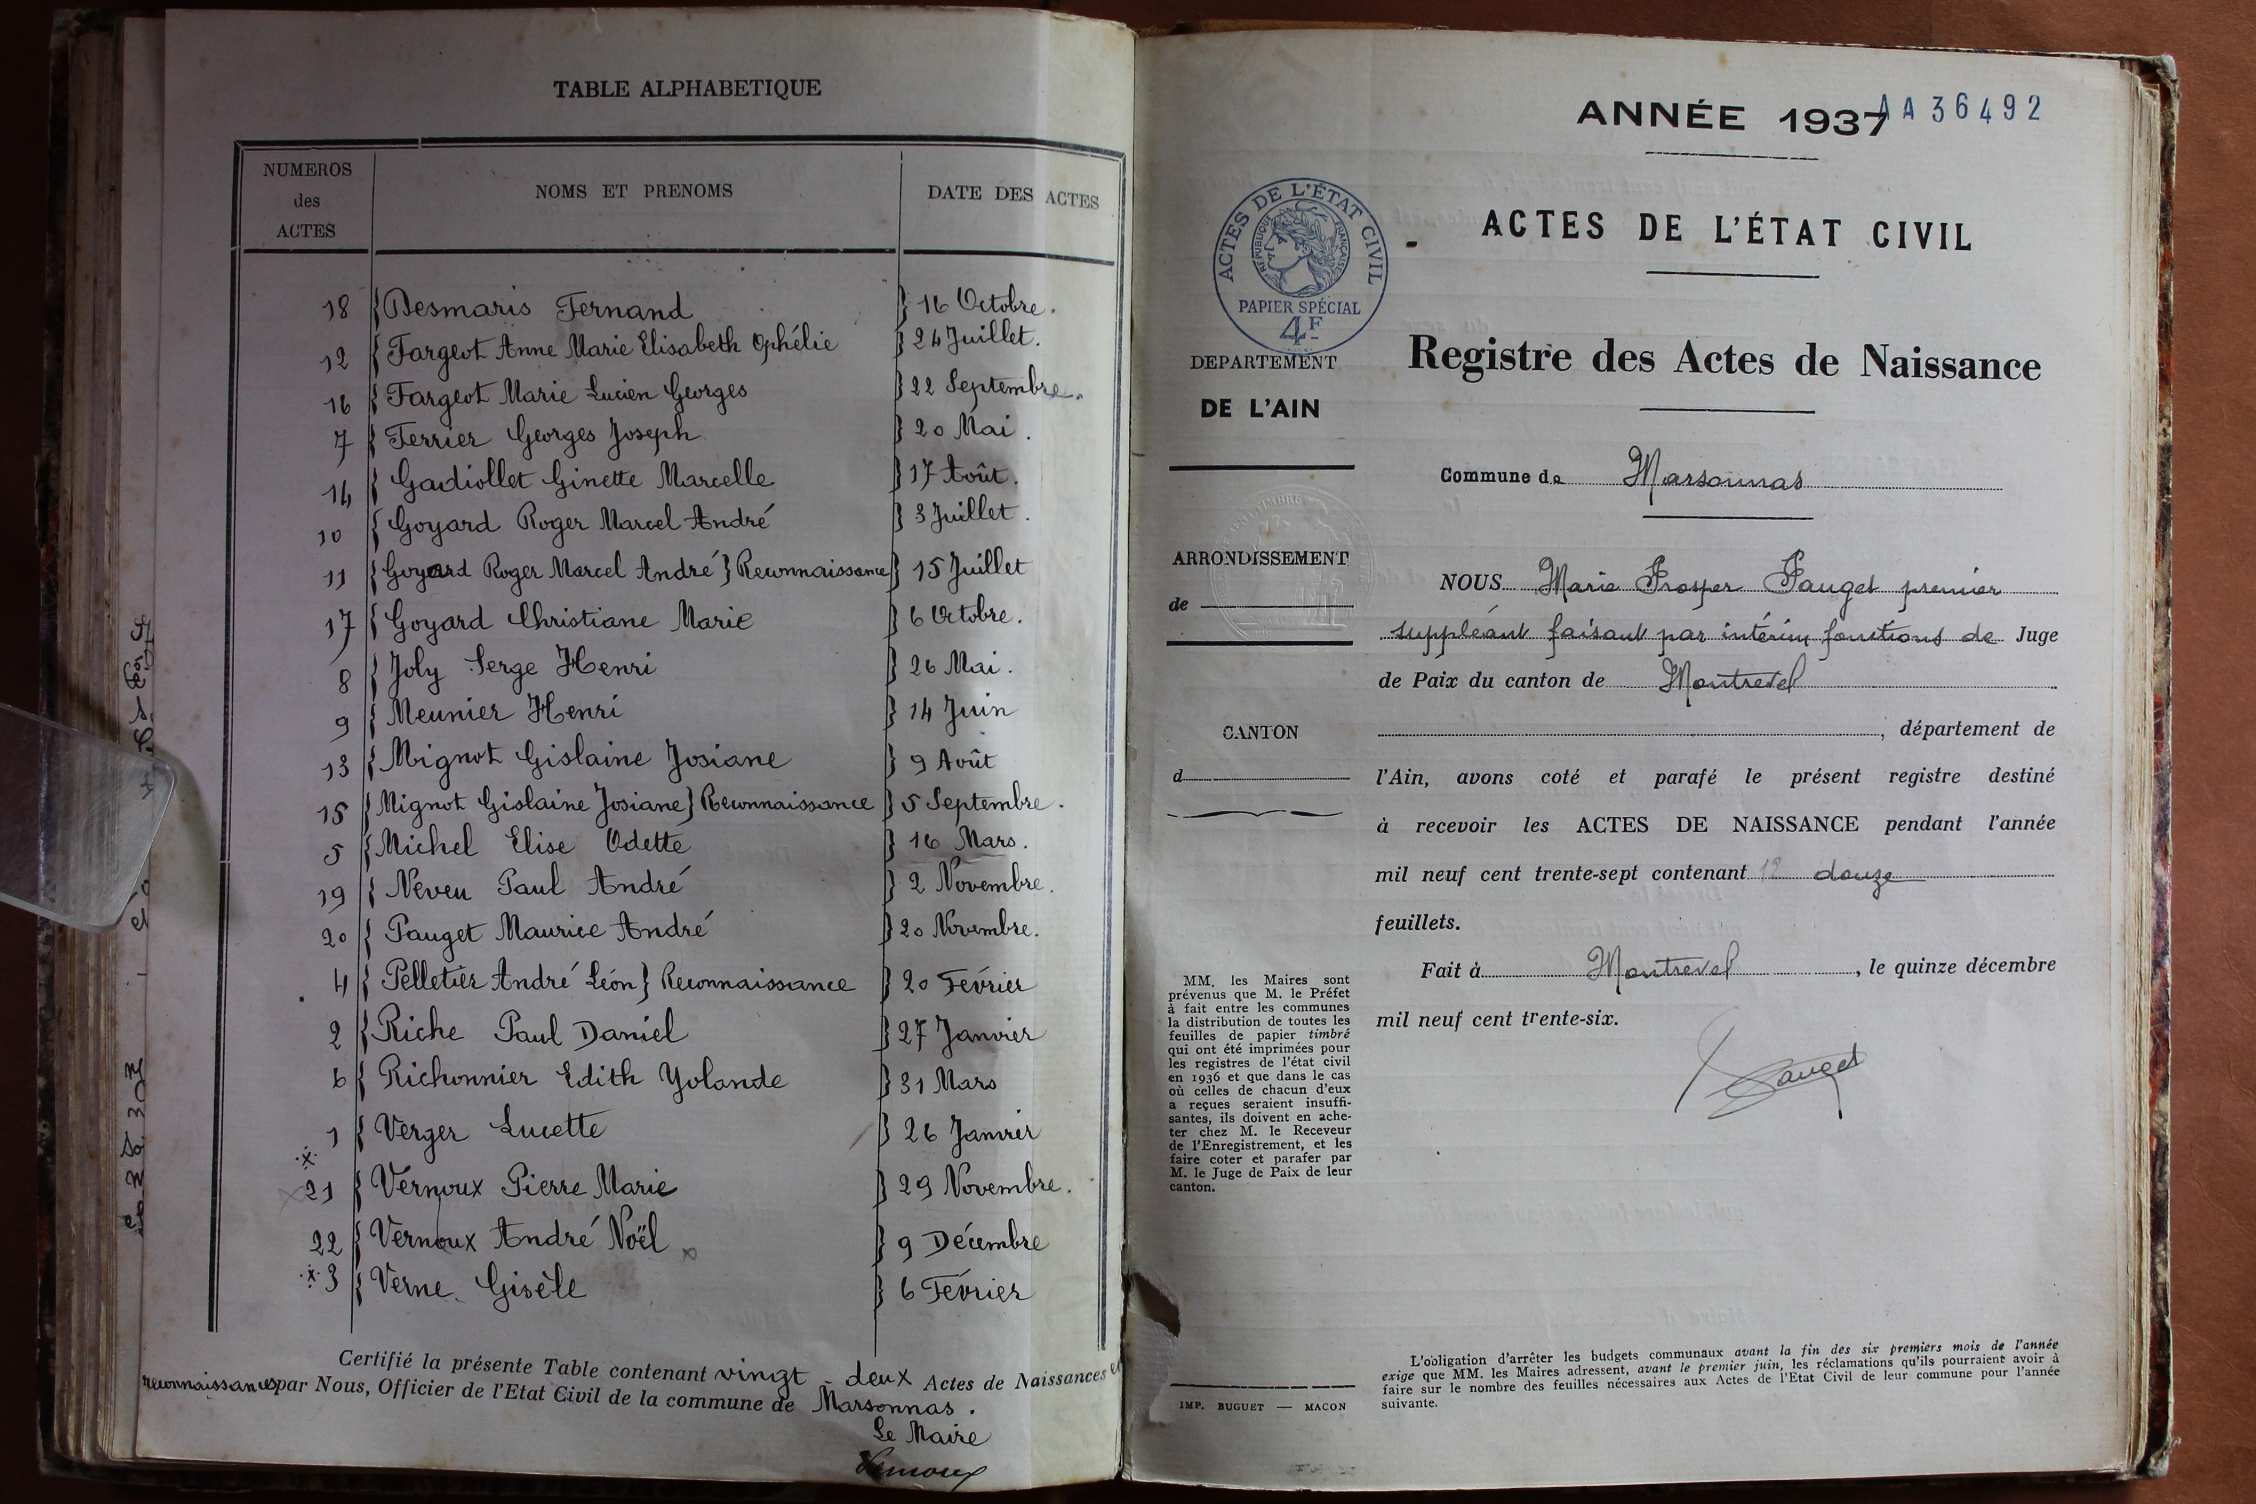 TABLE ALPHABETIQUE
NUMEROS des ACTES NOMS ET PRENOMS DATE DES ACTES
18 Desmaris Fernand 16 Octobre.
12 Fargeot Anne Marie Elisabeth Ophélie 24 Juillet.
16 Fargeot Marie Lucien Georges 22 Septembre.
7 Ferrier Georges Joseph 20 Mai.
14 Gadiollet Ginette Marcelle 17 Août.
10 Goyard Roger Marcel André 3 Juillet.
11 Goyard Roger Marcel André } Reconnaissance 15 Juillet
17 Goyard Christiane Marie 6 Octobre.
8 Joly Serge Henri 26 Mai.
9 Meunier Henri 14 Juin
13 Mignot Gislaine Josiane 9 Août
15 Mignot Gislaine Josiane } Reconnaissance 5 Septembre.
5 Michel Elise Odette 16 Mars.
19 Neveu Paul André 2 Novembre.
20 Pauget Maurice André 20 Novembre.
4 Pelletier André Léon } Reconnaissance 20 Février
2 Riche Paul Daniel 27 Janvier
6 Richonnier Edith Yolande 31 Mars
1 Verger Lucette 26 Janvier
21 Vernoux Pierre Marie 29 Novembre.
22 Vernoux André Noël 9 Décembre
3 Verne Gisèle 6 Février
Certifié la présente Table contenant vingt-deux Actes de Naissances et
reconnaissances par Nous, Officier de l'Etat Civil de la commune de Marsonnas.
Le Maire
Vernoux
ANNÉE 1937
AA36492
ACTES DE L'ÉTAT CIVIL
ACTES DE L'ÉTAT CIVIL
RÉPUBLIQUE FRANÇAISE
PAPIER SPÉCIAL
4F
DEPARTEMENT
DE L'AIN
ARRONDISSEMENT
de
CANTON
d
MM. les Maires sont
prévenus que M. le Préfet
à fait entre les communes
la distribution de toutes les
feuilles de papier timbré
qui ont été imprimées pour
les registres de l'état civil
en 1936 et que dans le cas
où celles de chacun d'eux
a reçues seraient insuffi-
santes, ils doivent en ache-
ter chez M. le Receveur
de l'Enregistrement, et les
faire coter et parafer par
M. le Juge de Paix de leur
canton.
IMP. BUGUET — MACON
Registre des Actes de Naissance
Commune de Marsonnas
NOUS Marie Prosper Pauget premier
suppléant faisant par intérim fonctions de Juge
de Paix du canton de Montrevel
, département de
l'Ain, avons coté et parafé le présent registre destiné
à recevoir les ACTES DE NAISSANCE pendant l'année
mil neuf cent trente-sept contenant 12 douze
feuillets.
Fait à Montrevel, le quinze décembre
mil neuf cent trente-six.
Pauget
L'obligation d'arrêter les budgets communaux avant la fin des six premiers mois de l'année
exige que MM. les Maires adressent, avant le premier juin, les réclamations qu'ils pourraient avoir à
faire sur le nombre des feuilles nécessaires aux Actes de l'Etat Civil de leur commune pour l'année
suivante.